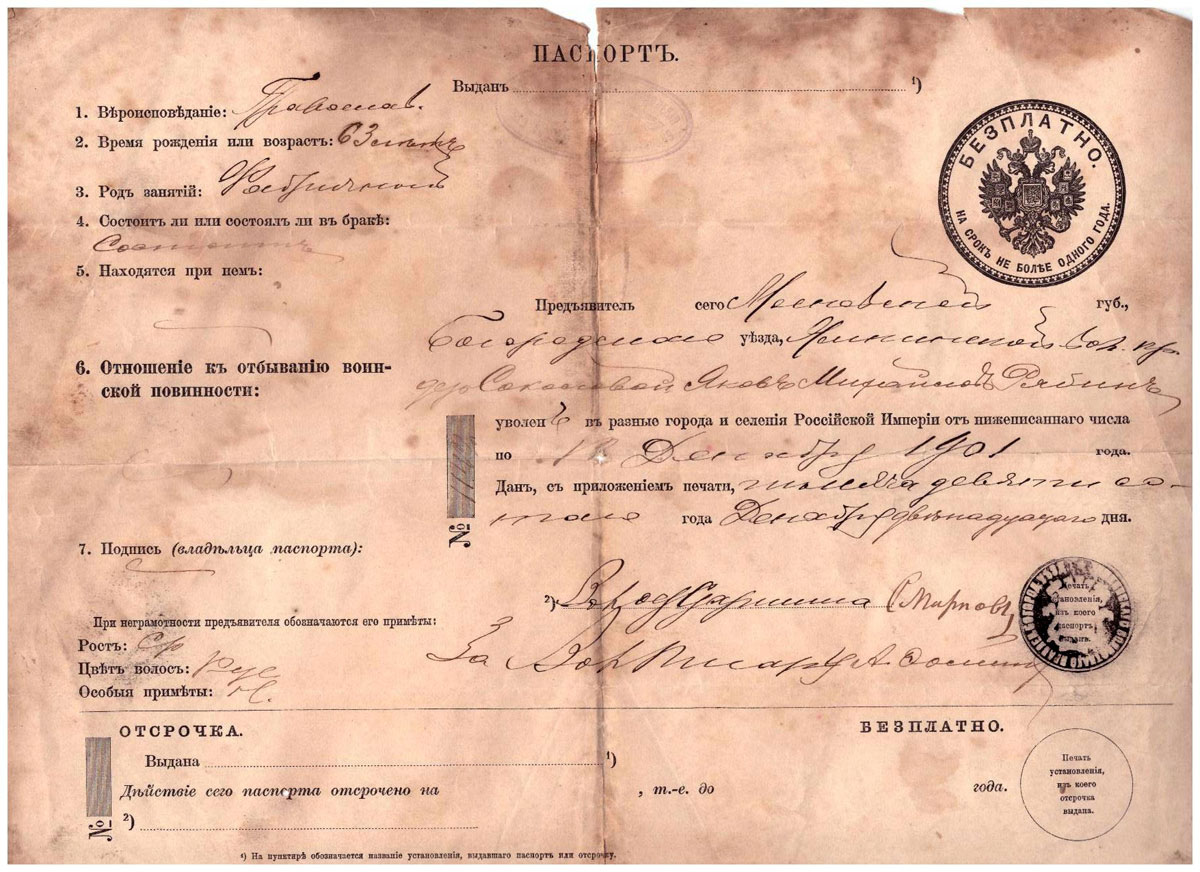 ПАСПОРТЪ.
Выданъ ¹)
1. Вѣроисповѣданіе: Православ.
2. Время рожденія или возрастъ: 63 лѣтъ
3. Родъ занятій: Фабричной
4. Состоитъ ли или состоялъ ли въ бракѣ:
Состоитъ
5. Находятся при немъ:
БЕЗПЛАТНО.
НА СРОКЪ НЕ БОЛѢЕ ОДНОГО ГОДА.
Предъявитель сего Московской губ.,
Богородскаго уѣзда, вол. кр.
дер. Яковъ Михайловъ Рябинъ
6. Отношеніе къ отбыванію воин-
ской повинности:
уволенъ въ разные города и селенія Россійской Имперіи отъ нижеписаннаго числа
по 12 Декабря 1901 года.
Данъ, съ приложеніемъ печати, тысяча девяти со-
таго года Декабря двѣнадцатаго дня.
№
7. Подпись (владѣльца паспорта):
²) Вол. Старшина Смирновъ
Печать
установленія,
изъ коего
паспортъ
выданъ.
При неграмотности предъявителя обозначаются его примѣты:
Ростъ: Ср
Цвѣтъ волосъ: Рус
Особыя примѣты:
За Вол. Писаря А.
ОТСРОЧКА. БЕЗПЛАТНО.
Выдана ¹)
Дѣйствіе сего паспорта отсрочено на , т.-е. до года.
№ ²)
Печать
установленія,
изъ коего
отсрочка
выдана.
¹) На пунктирѣ обозначается названіе установленія, выдавшаго паспортъ или отсрочку.